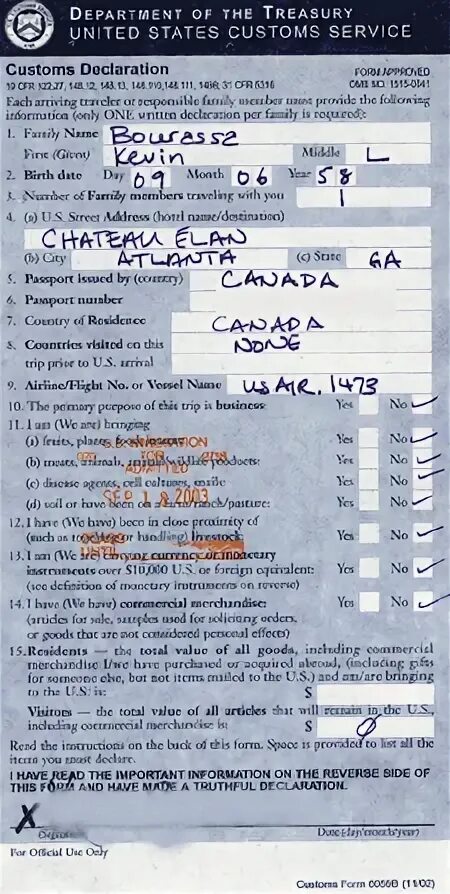 DEPARTMENT OF THE TREASURY
UNITED STATES CUSTOMS SERVICE
Customs Declaration
FORM APPROVED
19 CFR 122.27, 148.12, 148.13, 148.110, 148.111, 1498; 31 CFR 5316
OMB NO. 1515-0041
Each arriving traveler or responsible family member must provide the following
information (only ONE written declaration per family is required):
1. Family Name Bourassa
First (Given) Kevin Middle L
2. Birth date Day 09 Month 06 Year 58
3. Number of Family members traveling with you 1
4. (a) U.S. Street Address (hotel name/destination)
CHATEAU ELAN
(b) City ATLANTA (c) State GA
5. Passport issued by (country) CANADA
6. Passport number
7. Country of Residence CANADA
8. Countries visited on this NONE
trip prior to U.S. arrival
9. Airline/Flight No. or Vessel Name US AIR. 1473
10. The primary purpose of this trip is business: Yes No ✓
11. I am (We are) bringing
(a) fruits, plants, food, insects: Yes No ✓
(b) meats, animals, animal/wildlife products: Yes No ✓
(c) disease agents, cell cultures, snails: Yes No ✓
(d) soil or have been on a farm/ranch/pasture: Yes No ✓
U.S. IMMIGRATION
ADMITTED
SEP 18 2003
UNTIL
12. I have (We have) been in close proximity of
(such as touching or handling) livestock: Yes No ✓
13. I am (We are) carrying currency or monetary
instruments over $10,000 U.S. or foreign equivalent: Yes No ✓
(see definition of monetary instruments on reverse)
14. I have (We have) commercial merchandise: Yes No ✓
(articles for sale, samples used for soliciting orders,
or goods that are not considered personal effects)
15. Residents — the total value of all goods, including commercial
merchandise I/we have purchased or acquired abroad, (including gifts
for someone else, but not items mailed to the U.S.) and am/are bringing
to the U.S. is: $
Visitors — the total value of all articles that will remain in the U.S.,
including commercial merchandise is: $ 0
Read the instructions on the back of this form. Space is provided to list all the
items you must declare.
I HAVE READ THE IMPORTANT INFORMATION ON THE REVERSE SIDE OF
THIS FORM AND HAVE MADE A TRUTHFUL DECLARATION.
X
(Signature) Date (day/month/year)
For Official Use Only
Customs Form 6059B (11/02)